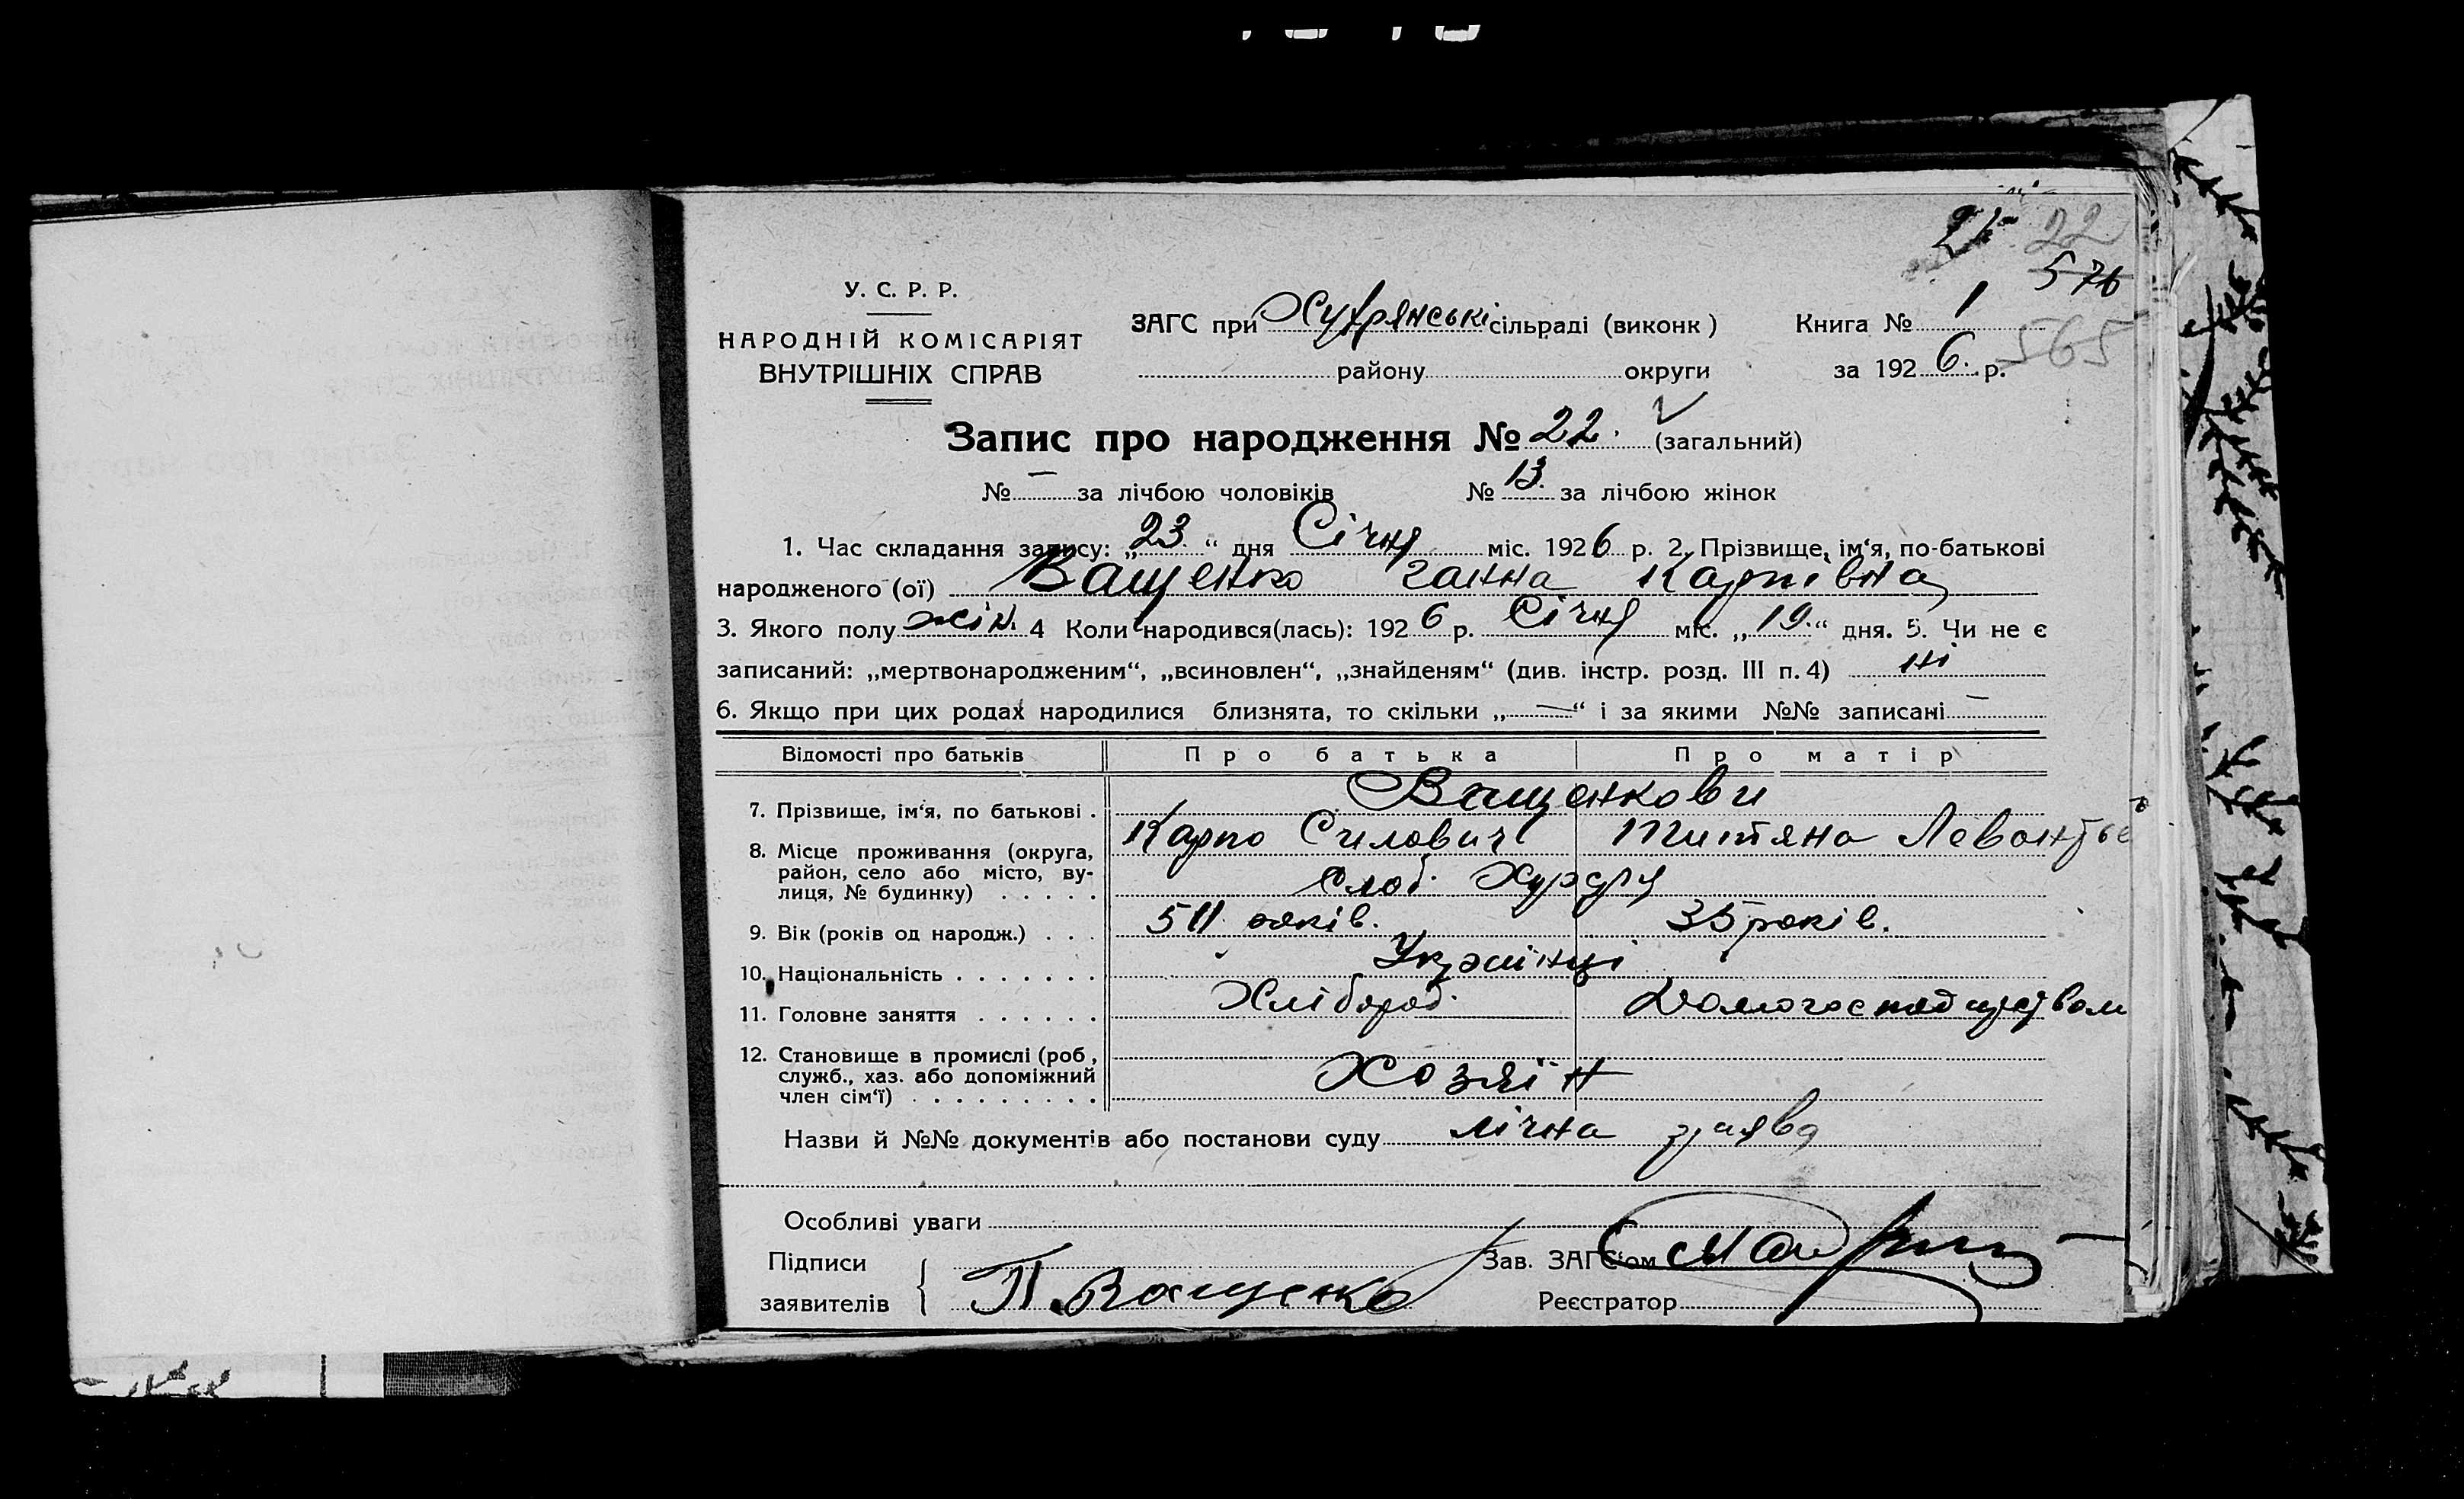 22
576
565
У. С. Р. Р.
НАРОДНІЙ КОМІСАРІЯТ
ВНУТРІШНІХ СПРАВ
ЗАГС при сільраді (виконк)
району округи
Книга № 1
за 1926. р.
Запис про народження № 22. (загальний)
№ — за лічбою чоловіків № 13. за лічбою жінок
1. Час складання запису: „23“ дня Січня міс. 1926 р. 2. Прізвище, ім‘я, по-батькові
народженого (ої) Ващенко Ганна Карпівна
3. Якого полу жін. 4 Коли народився(лась): 1926 р. Січня міс. „19.“ дня. 5. Чи не є
записаний: „мертвонародженим“, „всиновлен“, „знайденям“ (див. інстр. розд. III п. 4) ні
6. Якщо при цих родах народилися близнята, то скільки „—“ і за якими №№ записані —
Відомості про батьків Про батька Про матір
Ващенкови
7. Прізвище, ім‘я, по батькові . Карпо Силович Титяна
8. Місце проживання (округа,
район, село або місто, ву-
лиця, № будинку) . . . . . Слоб.
9. Вік (років од народж.) . . . 35 років.
10. Національність . . . . . . . Українці
11. Головне заняття . . . . . . Хлібороб.
12. Становище в промислі (роб,
служб., хаз. або допоміжний
член сім‘ї) . . . . . . . . . Хозяїн
Назви й №№ документів або постанови суду лічна заява
Особливі уваги
Підписи
заявителів П. Ващенко
Зав. ЗАГС‘ом
Реєстратор